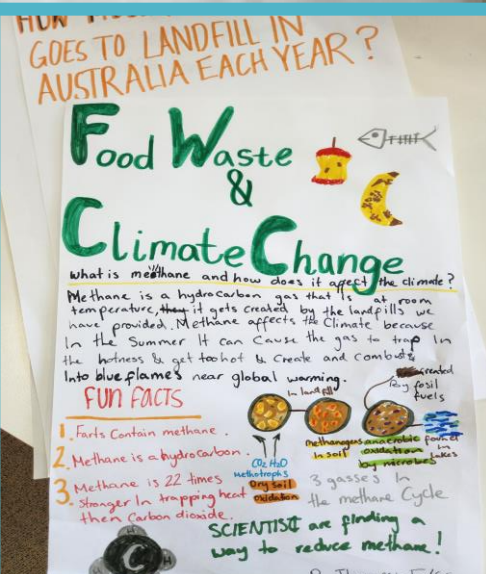 GOES TO LANDFILL IN
AUSTRALIA EACH YEAR?
Food Waste
&
Climate Change
What is methane and how does it affect the climate?
Methane is a hydrocarbon gas that is at room
temperature, it gets created by the landfills we
have provided. Methane affects the Climate because
In the Summer It can Cause the gas to trap In
the hotness & get too hot & Create and combust
Into blue flames near global warming.
FUN FACTS
1. Farts Contain methane.
2. Methane is a hydrocarbon.
3. Methane is 22 times
Stronger In trapping heat
then Carbon dioxide.
In landfill
created
By fosil
fuels
methangens
In soil
anaerobic
oxidation
by microbes
found
in
lakes
CO2 H2O
Methotrophs
Dry soil
oxidation
3 gasses In
the methane Cycle
SCIENTIST are finding a
way to reduce methane!
H
C
H